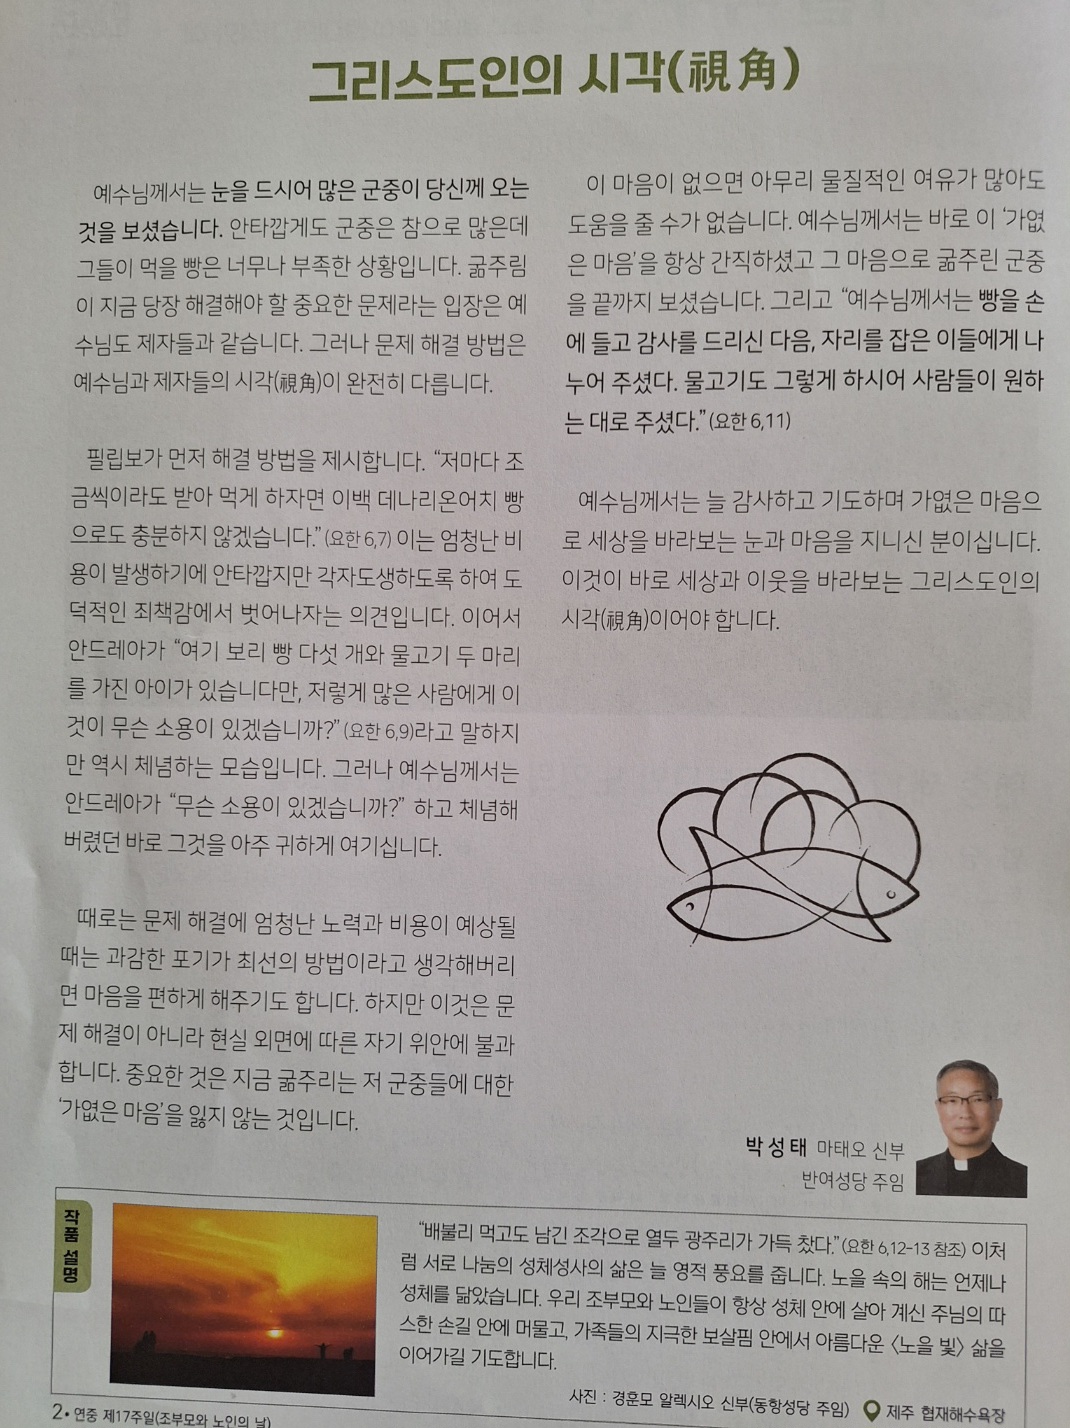 그리스도인의 시각(視角)
예수님께서는 눈을 드시어 많은 군중이 당신께 오는
것을 보셨습니다. 안타깝게도 군중은 참으로 많은데
그들이 먹을 빵은 너무나 부족한 상황입니다. 굶주림
이 지금 당장 해결해야 할 중요한 문제라는 입장은 예
수님도 제자들과 같습니다. 그러나 문제 해결 방법은
예수님과 제자들의 시각(視角)이 완전히 다릅니다.
필립보가 먼저 해결 방법을 제시합니다. “저마다 조
금씩이라도 받아 먹게 하자면 이백 데나리온어치 빵
으로도 충분하지 않겠습니다.”(요한 6,7) 이는 엄청난 비
용이 발생하기에 안타깝지만 각자도생하도록 하여 도
덕적인 죄책감에서 벗어나자는 의견입니다. 이어서
안드레아가 “여기 보리 빵 다섯 개와 물고기 두 마리
를 가진 아이가 있습니다만, 저렇게 많은 사람에게 이
것이 무슨 소용이 있겠습니까?”(요한 6,9)라고 말하지
만 역시 체념하는 모습입니다. 그러나 예수님께서는
안드레아가 “무슨 소용이 있겠습니까?” 하고 체념해
버렸던 바로 그것을 아주 귀하게 여기십니다.
때로는 문제 해결에 엄청난 노력과 비용이 예상될
때는 과감한 포기가 최선의 방법이라고 생각해버리
면 마음을 편하게 해주기도 합니다. 하지만 이것은 문
제 해결이 아니라 현실 외면에 따른 자기 위안에 불과
합니다. 중요한 것은 지금 굶주리는 저 군중들에 대한
‘가엾은 마음’을 잃지 않는 것입니다.
이 마음이 없으면 아무리 물질적인 여유가 많아도
도움을 줄 수가 없습니다. 예수님께서는 바로 이 ‘가엾
은 마음’을 항상 간직하셨고 그 마음으로 굶주린 군중
을 끝까지 보셨습니다. 그리고 “예수님께서는 빵을 손
에 들고 감사를 드리신 다음, 자리를 잡은 이들에게 나
누어 주셨다. 물고기도 그렇게 하시어 사람들이 원하
는 대로 주셨다.”(요한 6,11)
예수님께서는 늘 감사하고 기도하며 가엾은 마음으
로 세상을 바라보는 눈과 마음을 지니신 분이십니다.
이것이 바로 세상과 이웃을 바라보는 그리스도인의
시각(視角)이어야 합니다.
박성태 마태오 신부
반여성당 주임
작품 설명
“배불리 먹고도 남긴 조각으로 열두 광주리가 가득 찼다.”(요한 6,12-13 참조) 이처
럼 서로 나눔의 성체성사의 삶은 늘 영적 풍요를 줍니다. 노을 속의 해는 언제나
성체를 닮았습니다. 우리 조부모와 노인들이 항상 성체 안에 살아 계신 주님의 따
스한 손길 안에 머물고, 가족들의 지극한 보살핌 안에서 아름다운 〈노을 빛〉 삶을
이어가길 기도합니다.
사진 : 경훈모 알렉시오 신부(동항성당 주임) 제주 협재해수욕장
2• 연중 제17주일(조부모와 노인의 날)